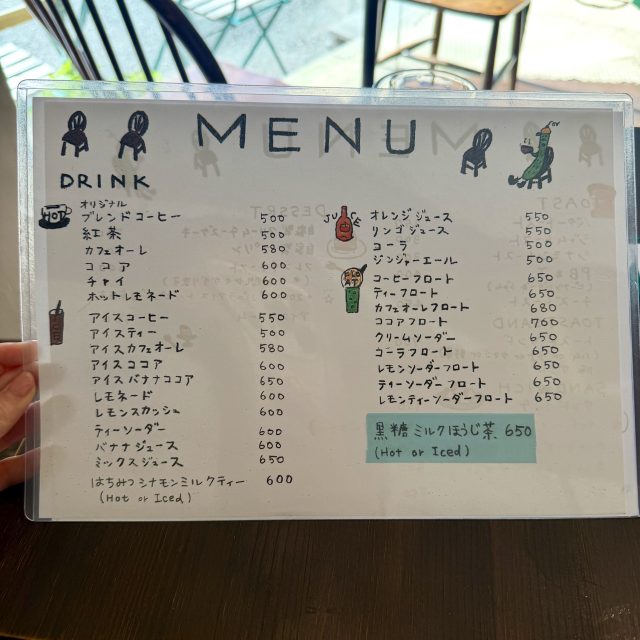 MENU
DRINK
HOT
オリジナル
ブレンドコーヒー 500
紅茶 500
カフェオーレ 580
ココア 600
チャイ 600
ホットレモネード 600
アイスコーヒー 550
アイスティー 500
アイスカフェオーレ 580
アイスココア 600
アイスバナナココア 650
レモネード 600
レモンスカッシュ 600
ティーソーダー 600
バナナジュース 600
ミックスジュース 650
はちみつシナモンミルクティー 600
(Hot or Iced)
JUICE
オレンジジュース 550
リンゴジュース 550
コーラ 500
ジンジャーエール 500
FLOAT
コーヒーフロート 650
ティーフロート 650
カフェオレフロート 680
ココアフロート 700
クリームソーダー 650
コーラフロート 650
レモンソーダーフロート 650
ティーソーダーフロート 650
レモンティーソーダーフロート 650
黒糖ミルクほうじ茶 650
(Hot or Iced)